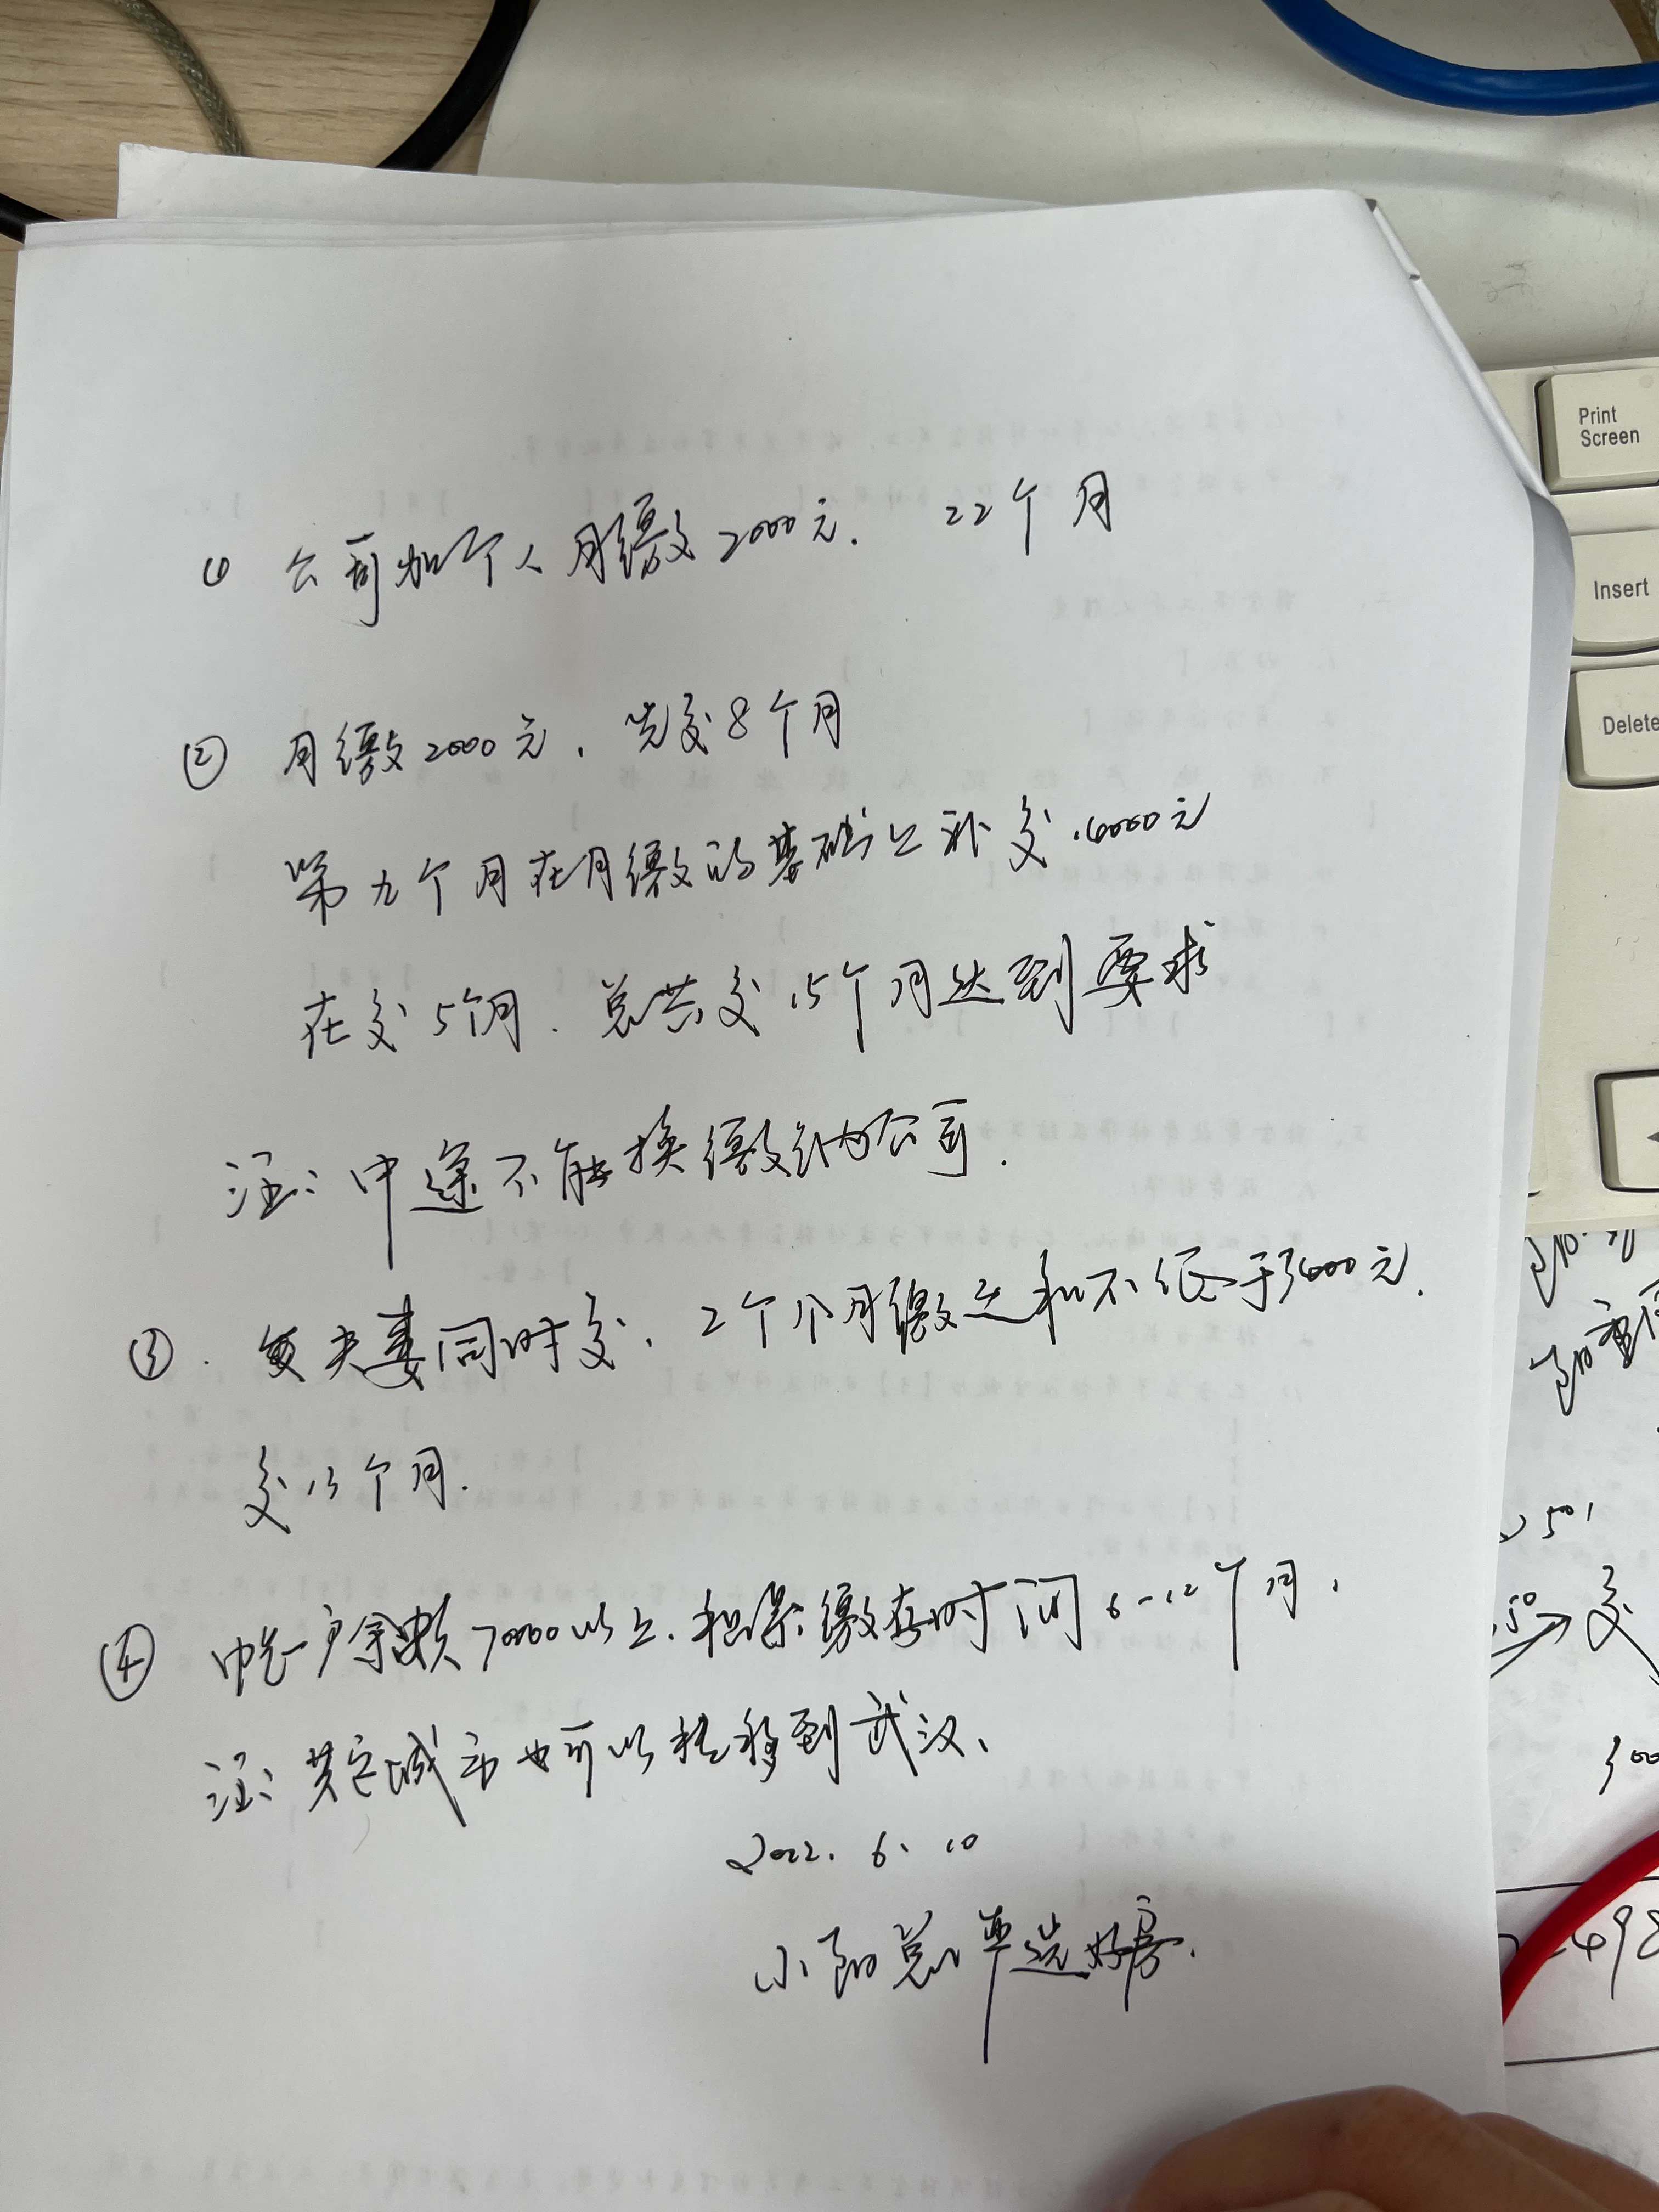 ① 公司加个人月缴2000元. 22个月
② 月缴2000元, 先交8个月
第九个月在月缴的基础上补交16000元
在交5个月. 总共交15个月达到要求
注: 中途不能换缴纳公司.
③. 夫妻同时交, 2个人月缴之和不低于3600元.
交13个月.
④ 户余额70000以上, 担保缴存时间6-12个月,
注: 其它城市也可以转移到武汉、
2022. 6. 10
小阳总 选好房.
Print
Screen
Insert
Delete